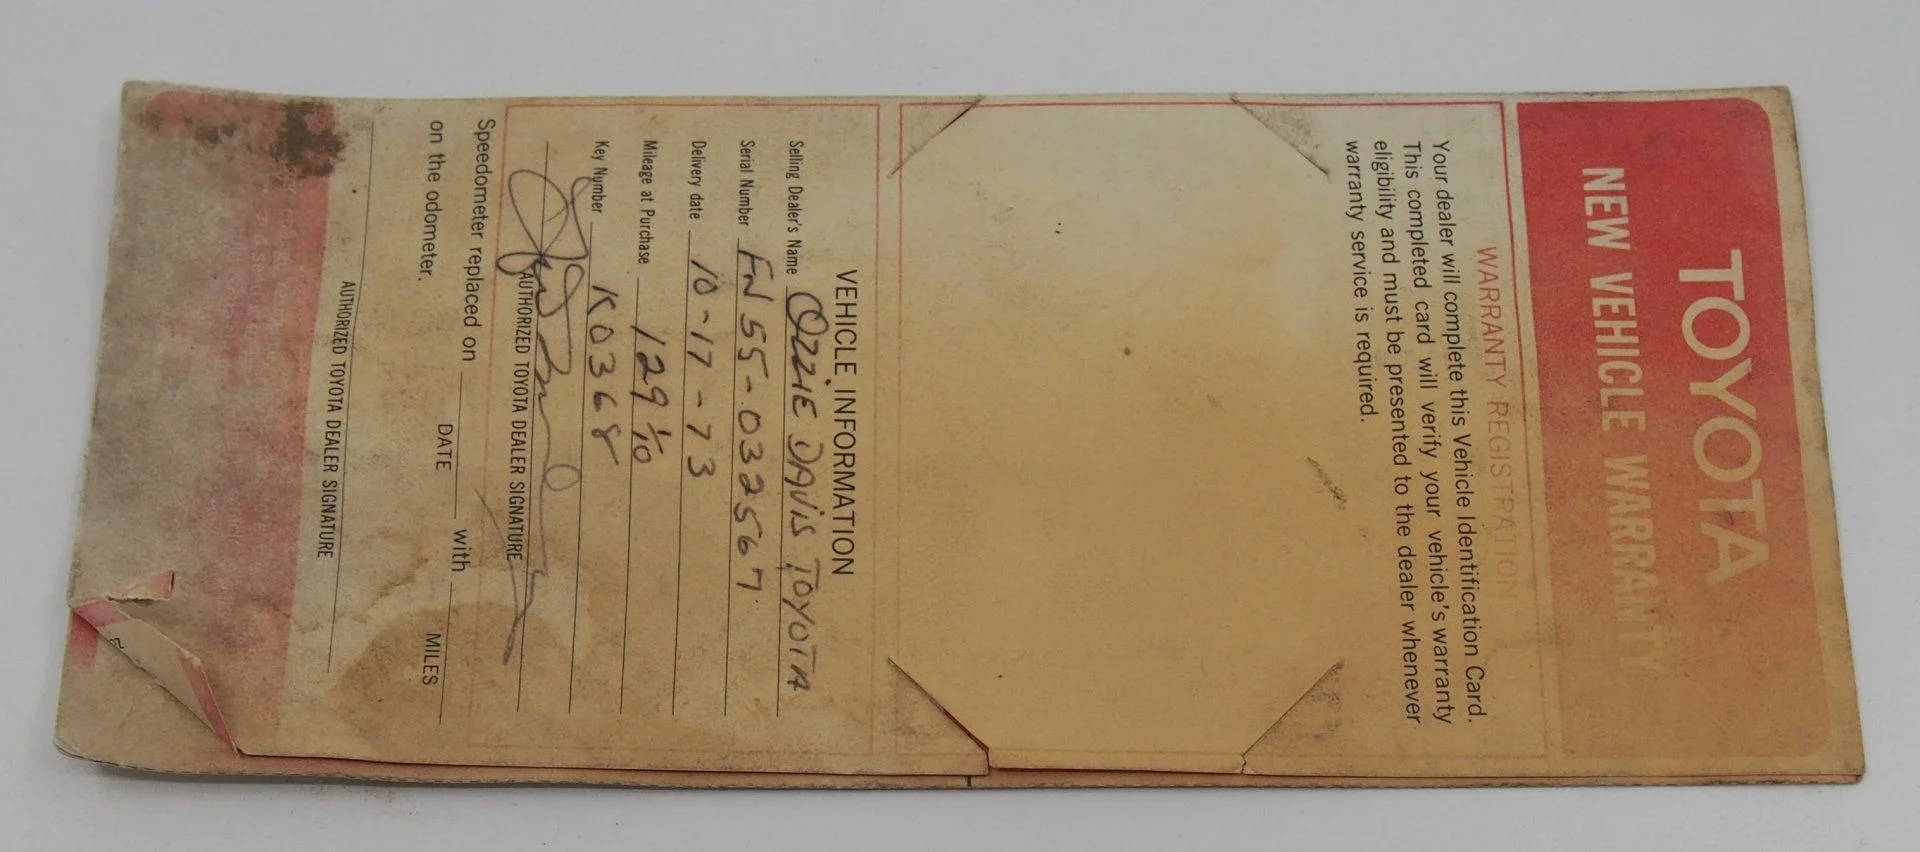 TOYOTA
NEW VEHICLE WARRANTY
WARRANTY REGISTRATION
Your dealer will complete this Vehicle Identification Card.
This completed card will verify your vehicle's warranty
eligibility and must be presented to the dealer whenever
warranty service is required.
VEHICLE INFORMATION
Selling Dealer's Name OZZIE DAVIS TOYOTA
Serial Number FN55-032567
Delivery date 10-17-73
Mileage at Purchase 129 1/10
Key Number K0368
AUTHORIZED TOYOTA DEALER SIGNATURE
Speedometer replaced on with
DATE MILES
on the odometer.
AUTHORIZED TOYOTA DEALER SIGNATURE